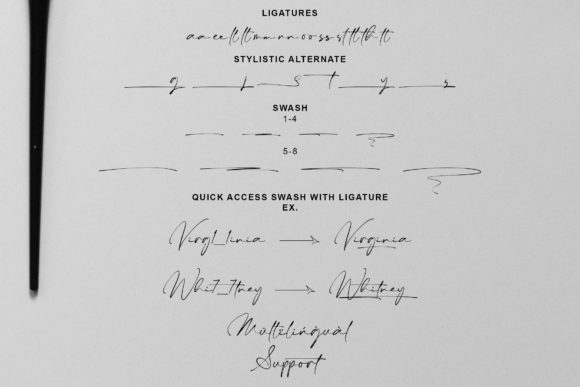 LIGATURES
aa ee
STYLISTIC ALTERNATE
g j s t y s
SWASH
1-4
5-8
QUICK ACCESS SWASH WITH LIGATURE
EX.
Virg1_1inia Virginia
Whi7_7tney Whitney
Multilingual
Support